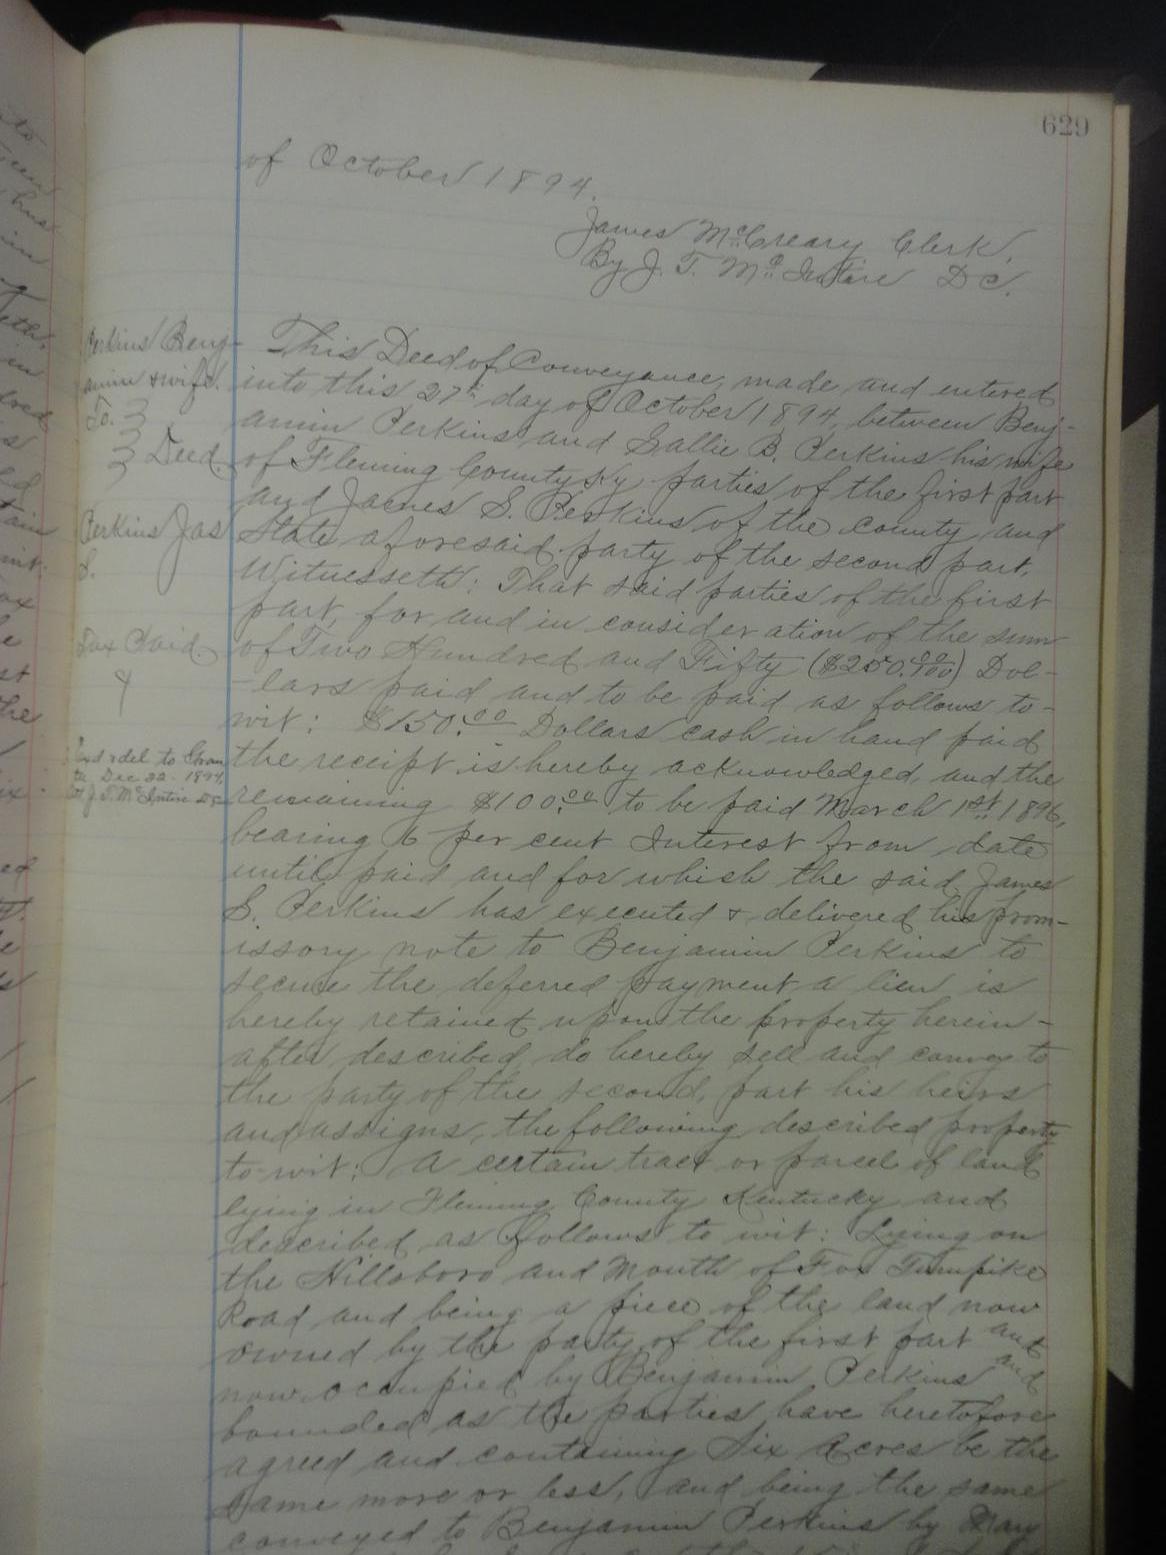 629
of October 1894.
James McCreary Clerk.
By J. T. McIntire D.C.
Perkins Benj-
amin & wife.
To. } 
} Deed
Perkins Jas
S.
Tax Paid
Exd & del to Gran
tee Dec 22 - 1894
J. T. McIntire D.C.
This Deed of Conveyance, made and entered
into this 27th day of October 1894, between Benj-
amin Perkins and Sallie B. Perkins his wife
of Fleming County Ky parties of the first part
and James S. Perkins of the county and
State aforesaid party of the second part.
Witnesseth: That said parties of the first
part, for and in consideration of the sum
of Two Hundred and Fifty ($250.00/100) Dol-
-lars paid and to be paid as follows to-
wit: $150.00 Dollars cash in hand paid
the receipt is hereby acknowledged, and the
remaining $100.00 to be paid March 1st 1896,
bearing 6 per cent Interest from date
until paid and for which the said James
S. Perkins has executed & delivered his prom-
issory note to Benjamin Perkins to
secure the deferred payment a lien is
hereby retained upon the property herein-
after described, do hereby sell and convey to
the party of the second, part his heirs
and assigns, the following described property
to-wit: A certain tract or parcel of land
lying in Fleming County Kentucky and
described as follows to wit: Lying on
the Hillsboro and Mouth of Fox Turnpike
Road and being a piece of the land now
owned by the party of the first part and
now occupied by Benjamin Perkins and
bounded as the parties have heretofore
agreed and containing Six Acres be the
same more or less, and being the same
conveyed to Benjamin Perkins by Mary